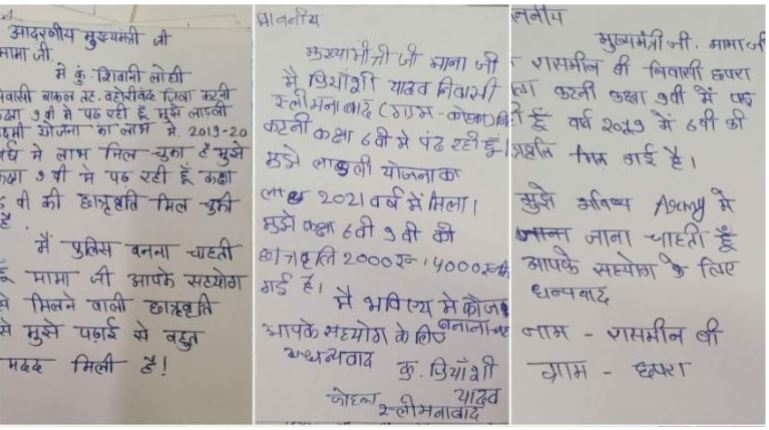 आदरनीय मुख्यमंत्री जी
मामा जी.
मे कु. शिवानी लोधी
बाकल तह. बहोरीबंद जिला कटनी
कक्षा 9 वी मे पढ़ रही हूँ मुझे लाडली
लक्ष्मी योजना का लाभ मे. 2019-20
वर्ष मे लाभ मिल चुका है मुझे
कक्षा 9 वी मे पढ़ रही हूँ कक्षा
6 वी की छात्रवृति मिल चुकी
है
मैं पुलिस बनना चाहती
हूँ मामा जी आपके सहयोग
से मिलने वाली छात्रवृति
से मुझे पढ़ाई से बहुत
मदद मिली है!
माननीय
मुख्यामंत्री जी मामा जी
मै प्रियाँशी यादव निवासी
स्लीमनाबाद (ग्राम - कोहका)
कटनी कक्षा 6वी मे पढ रही हूँ।
मुझे लाडली योजना का
लाभ 2021 वर्ष में मिला।
मुझे कक्षा 6वी 9 वी की
छात्रवृति 2000रू, 4000रू
गई है।
मै भविष्य मे फौज
बनाना
आपके सहयोग के लिए
धन्यवाद
कु. प्रियाँशी
यादव
कोहका
स्लीमनाबाद
माननीय
मुख्यमंत्री जी. मामा जी
रासमीन बी निवासी छपरा
कटनी कक्षा 9वी में पढ़
हूँ वर्ष 2019 में 6वी की
मिल गई है।
मुझे भविष्य Army में
जाना चाहती हूँ
आपके सहयोग के लिए
धन्यवाद
नाम - रासमीन बी
ग्राम - छपरा